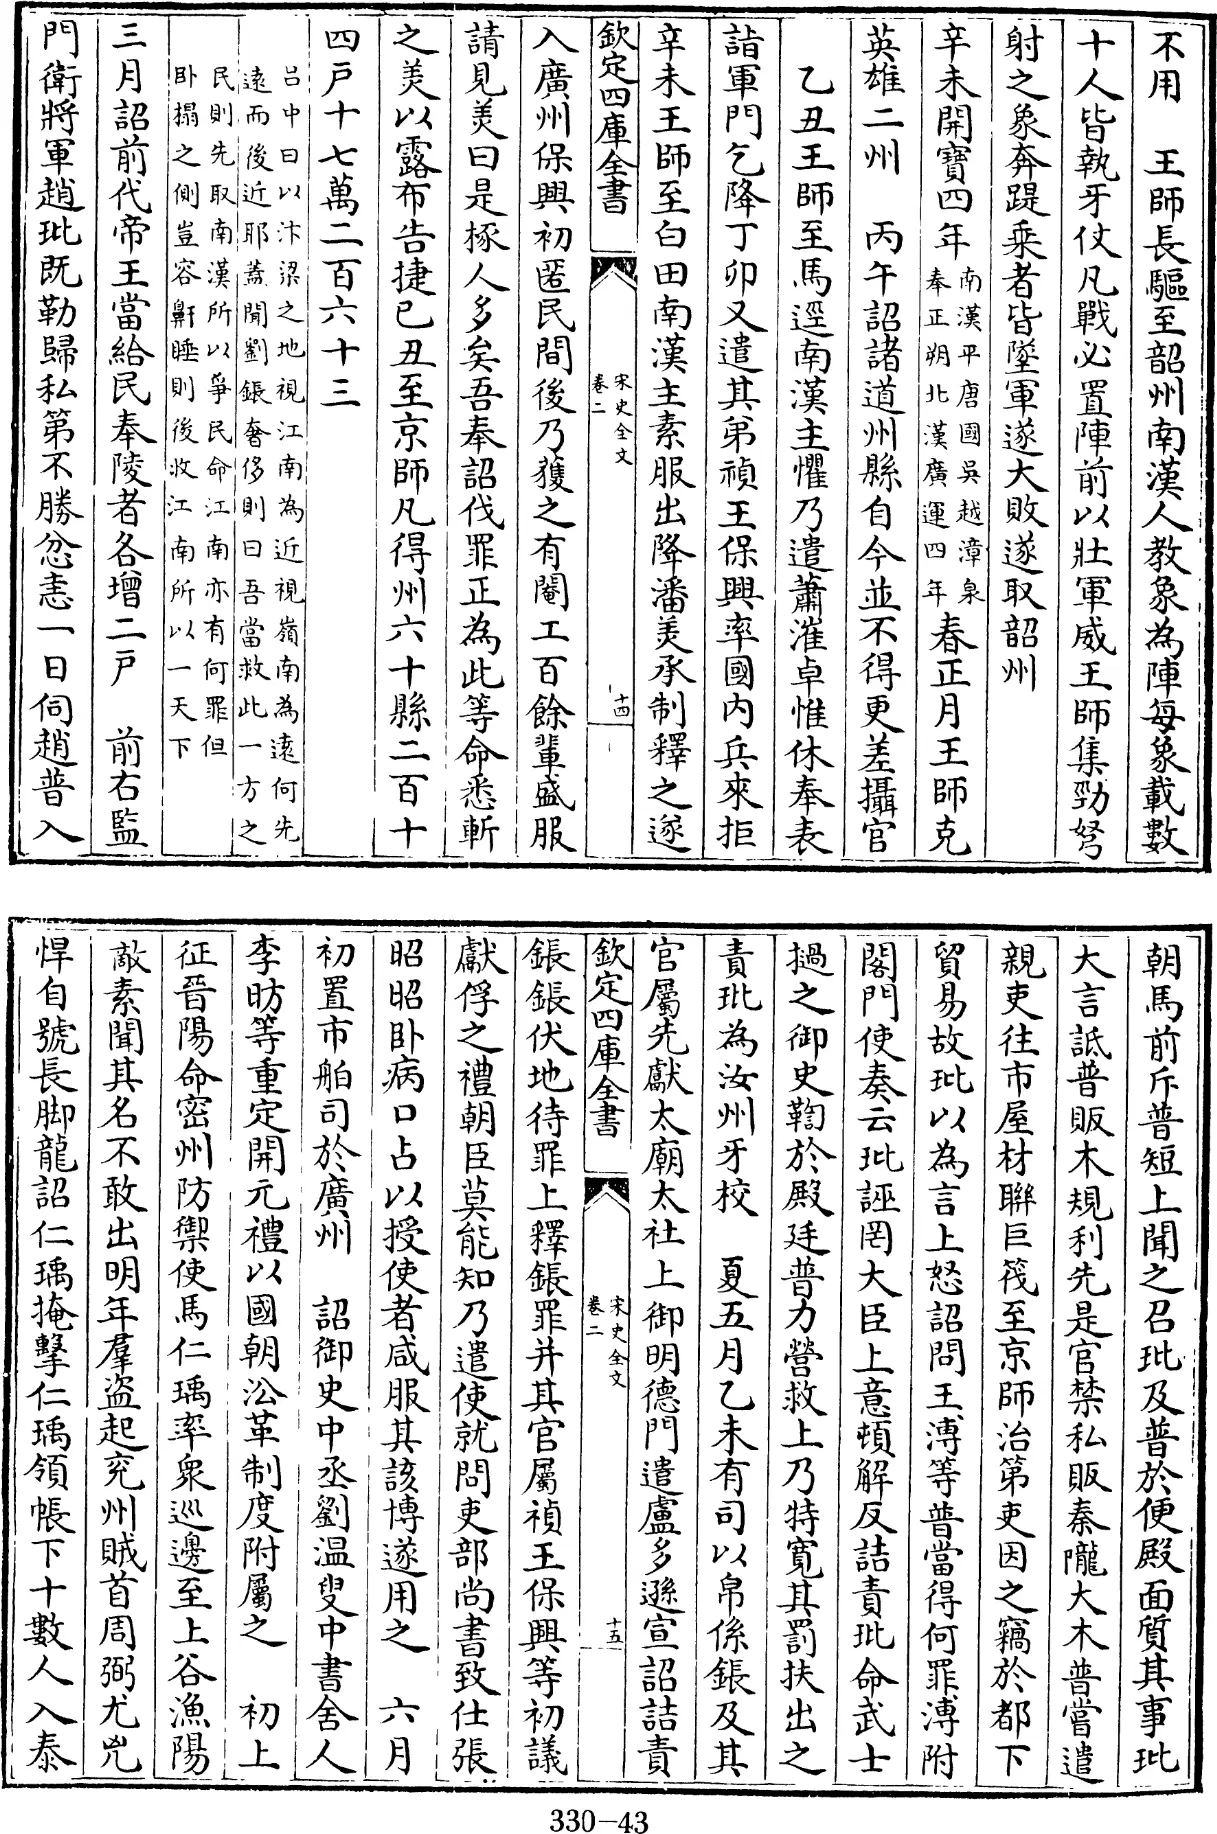 不用　王師長驅至韶州南漢人教象為陣每象載數
十人皆執牙仗凡戰必置陣前以壯軍威王師集勁弩
射之象奔踶乘者皆墜軍遂大敗遂取韶州
辛未開寶四年南漢平唐國吳越漳泉奉正朔北漢廣運四年春正月王師克
英雄二州　丙午詔諸道州縣自今並不得更差攝官
乙丑王師至馬逕南漢主懼乃遣蕭漼卓惟休奉表
詣軍門乞降丁卯又遣其弟禎王保興率國内兵來拒
辛未王師至白田南漢主素服出降潘美承制釋之遂
欽定四庫全書
宋史全文
卷二
十四
入廣州保興初匿民間後乃獲之有閹工百餘輩盛服
請見美曰是椓人多矣吾奉詔伐罪正為此等命悉斬
之美以露布告捷己丑至京師凡得州六十縣二百十
四戸十七萬二百六十三
吕中曰以汴梁之地視江南為近視嶺南為遠何先
遠而後近耶葢聞劉鋹奢侈則曰吾當救此一方之
民則先取南漢所以爭民命江南亦有何罪但
卧榻之側豈容鼾睡則後收江南所以一天下
三月詔前代帝王當給民奉陵者各增二戸　前右監
門衛將軍趙玭既勒歸私第不勝忿恚一日伺趙普入
朝馬前斥普短上聞之召玭及普於便殿面質其事玭
大言詆普販木規利先是官禁私販秦隴大木普嘗遣
親吏往市屋材聯巨筏至京師治第吏因之竊於都下
貿易故玭以為言上怒詔問王溥等普當得何罪溥附
閣門使奏云玭誣罔大臣上意頓解反詰責玭命武士
撾之御史鞫於殿廷普力營救上乃特寛其罰扶出之
責玭為汝州牙校　夏五月乙未有司以帛係鋹及其
官屬先獻太廟太社上御明德門遣盧多遜宣詔詰責
欽定四庫全書
宋史全文
卷二
十五
鋹鋹伏地待罪上釋鋹罪并其官屬禎王保興等初議
獻俘之禮朝臣莫能知乃遣使就問吏部尚書致仕張
昭昭卧病口占以授使者咸服其該博遂用之　六月
初置市舶司於廣州　詔御史中丞劉温叟中書舍人
李昉等重定開元禮以國朝沿革制度附屬之　初上
征晉陽命密州防禦使馬仁瑀率衆巡邊至上谷漁陽
敵素聞其名不敢出明年羣盜起兖州賊首周弼尤兇
悍自號長脚龍詔仁瑀掩擊仁瑀領帳下十數人入泰
330-43